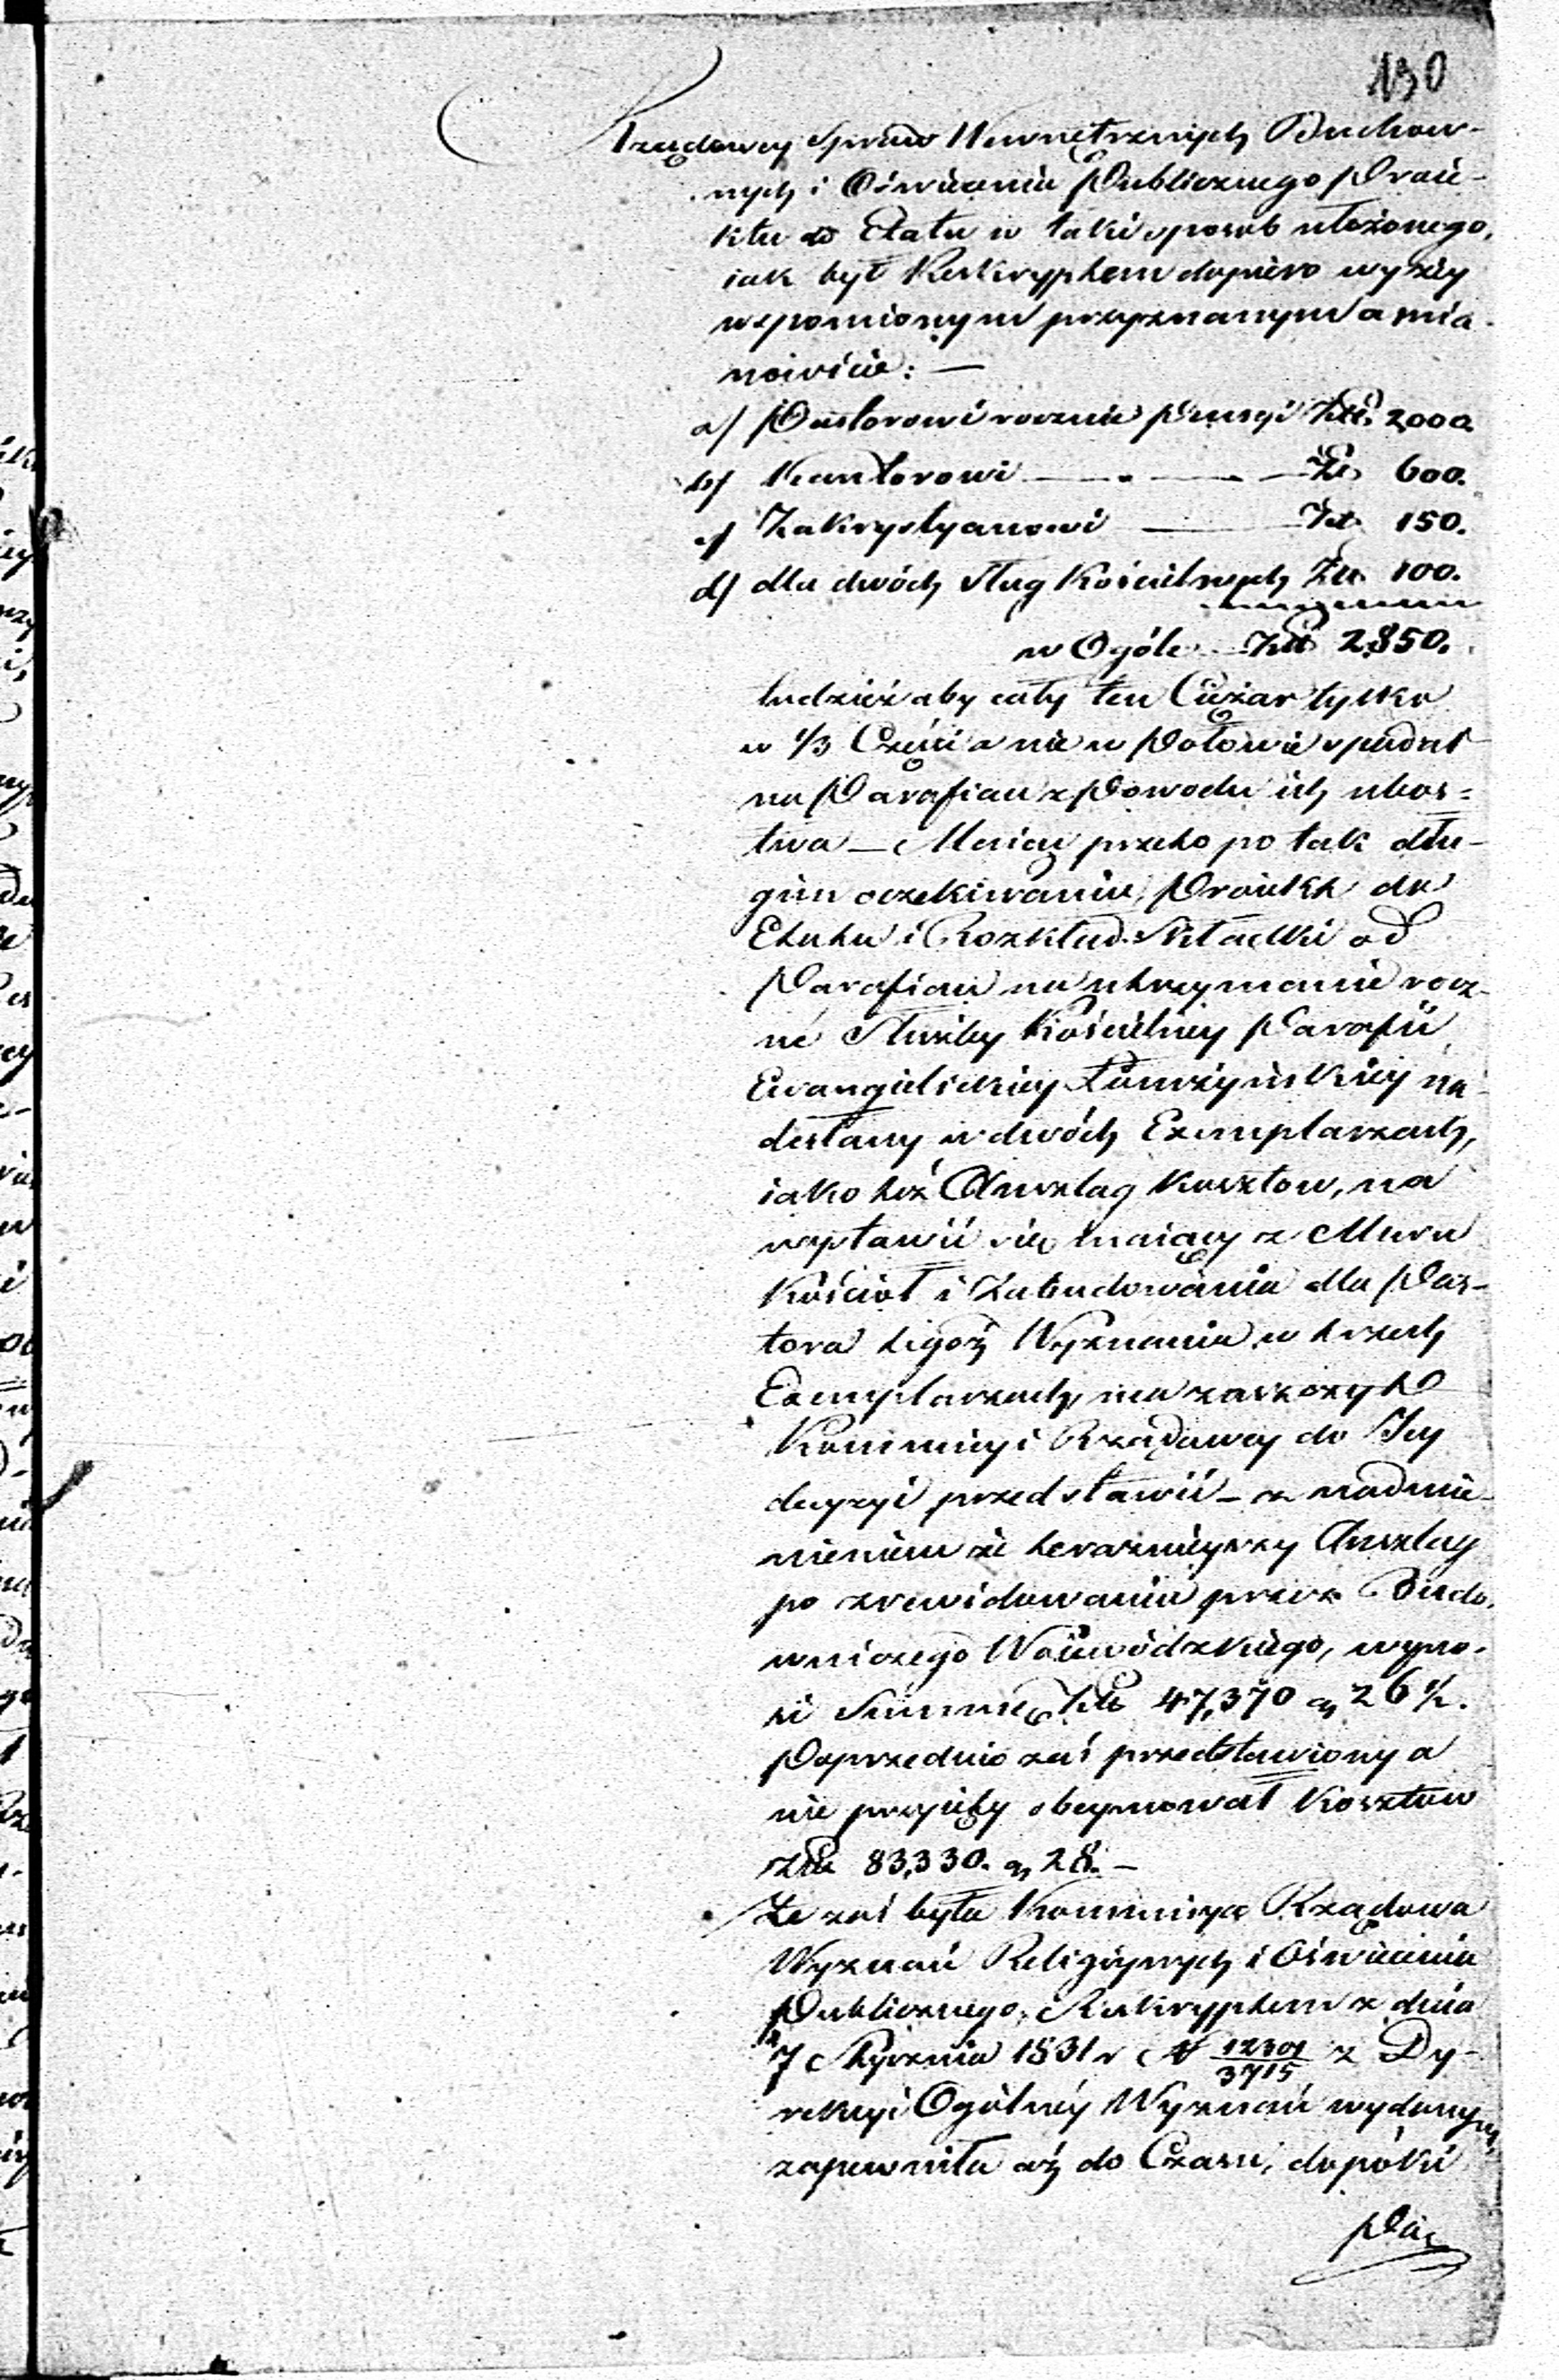 130
Rządowey Spraw Wewnętrznych Duchow-
nych i Oświecenia Publicznego Proie-
ktu do Etatu w taki sposob ułożonego,
iak był Reskryptem dopiero wyżey
wspomionym przyznanym a mia-
nowicie: —
a/ Pastorowi rocznie Pensyi Złt. 2000.
b/ Kantorowi — Zł. 600.
c/ Zakrystyanowi — Złt. 150.
d/ dla dwóch sług Kościelnych Zł. 100.
w Ogóle Złt 2,850.
tudzież aby cały ten Ciężar tylko
w 1/3 Części a nie w Połowie spadał
na Parafian z Powodu ich ubós=
twa — Maiąc przeto po tak dłu-
giem oczekiwaniu, Proiekt do
Etatu i Rozkład Składki od
Parafian na utrzymanie rocz-
né Służby Kościelney Parafii
Ewangielickiey Łomżyńskiey na-
desłany w dwóch Exemplarzach,
iako też Anszlag kosztow, na
wystawić się maiący z Muru
Kościoł i Zabudowania dla Pas-
tora tegoż Wyznania w trzech
Exemplarzach, ma zaszczyt
Kommissyi Rządowey do Jey
decyzyi przedstawić — z nadmie-
nieniem że teraznieyszy Anszlag
po zrewidowaniu przez Budo-
wniczego Woiewódzkiego, wyno-
si Summę Złt 47,370 g 26 1/2.
Poprzednio zaś przedstawiony a
nie przyięty obeymował Kosztow
Złt 83,330. g 28. —
Że zaś była Kommissya Rządowa
Wyznań Religiynych i Oświecenia
Publicznego, Reskryptem z dnia
7 Stycznia 1831 r N 12301/3715 z Dy-
rekcyi Ogólnéy Wyznań wydanym,
zapewniła aż do Czasu, dopóki
Pa